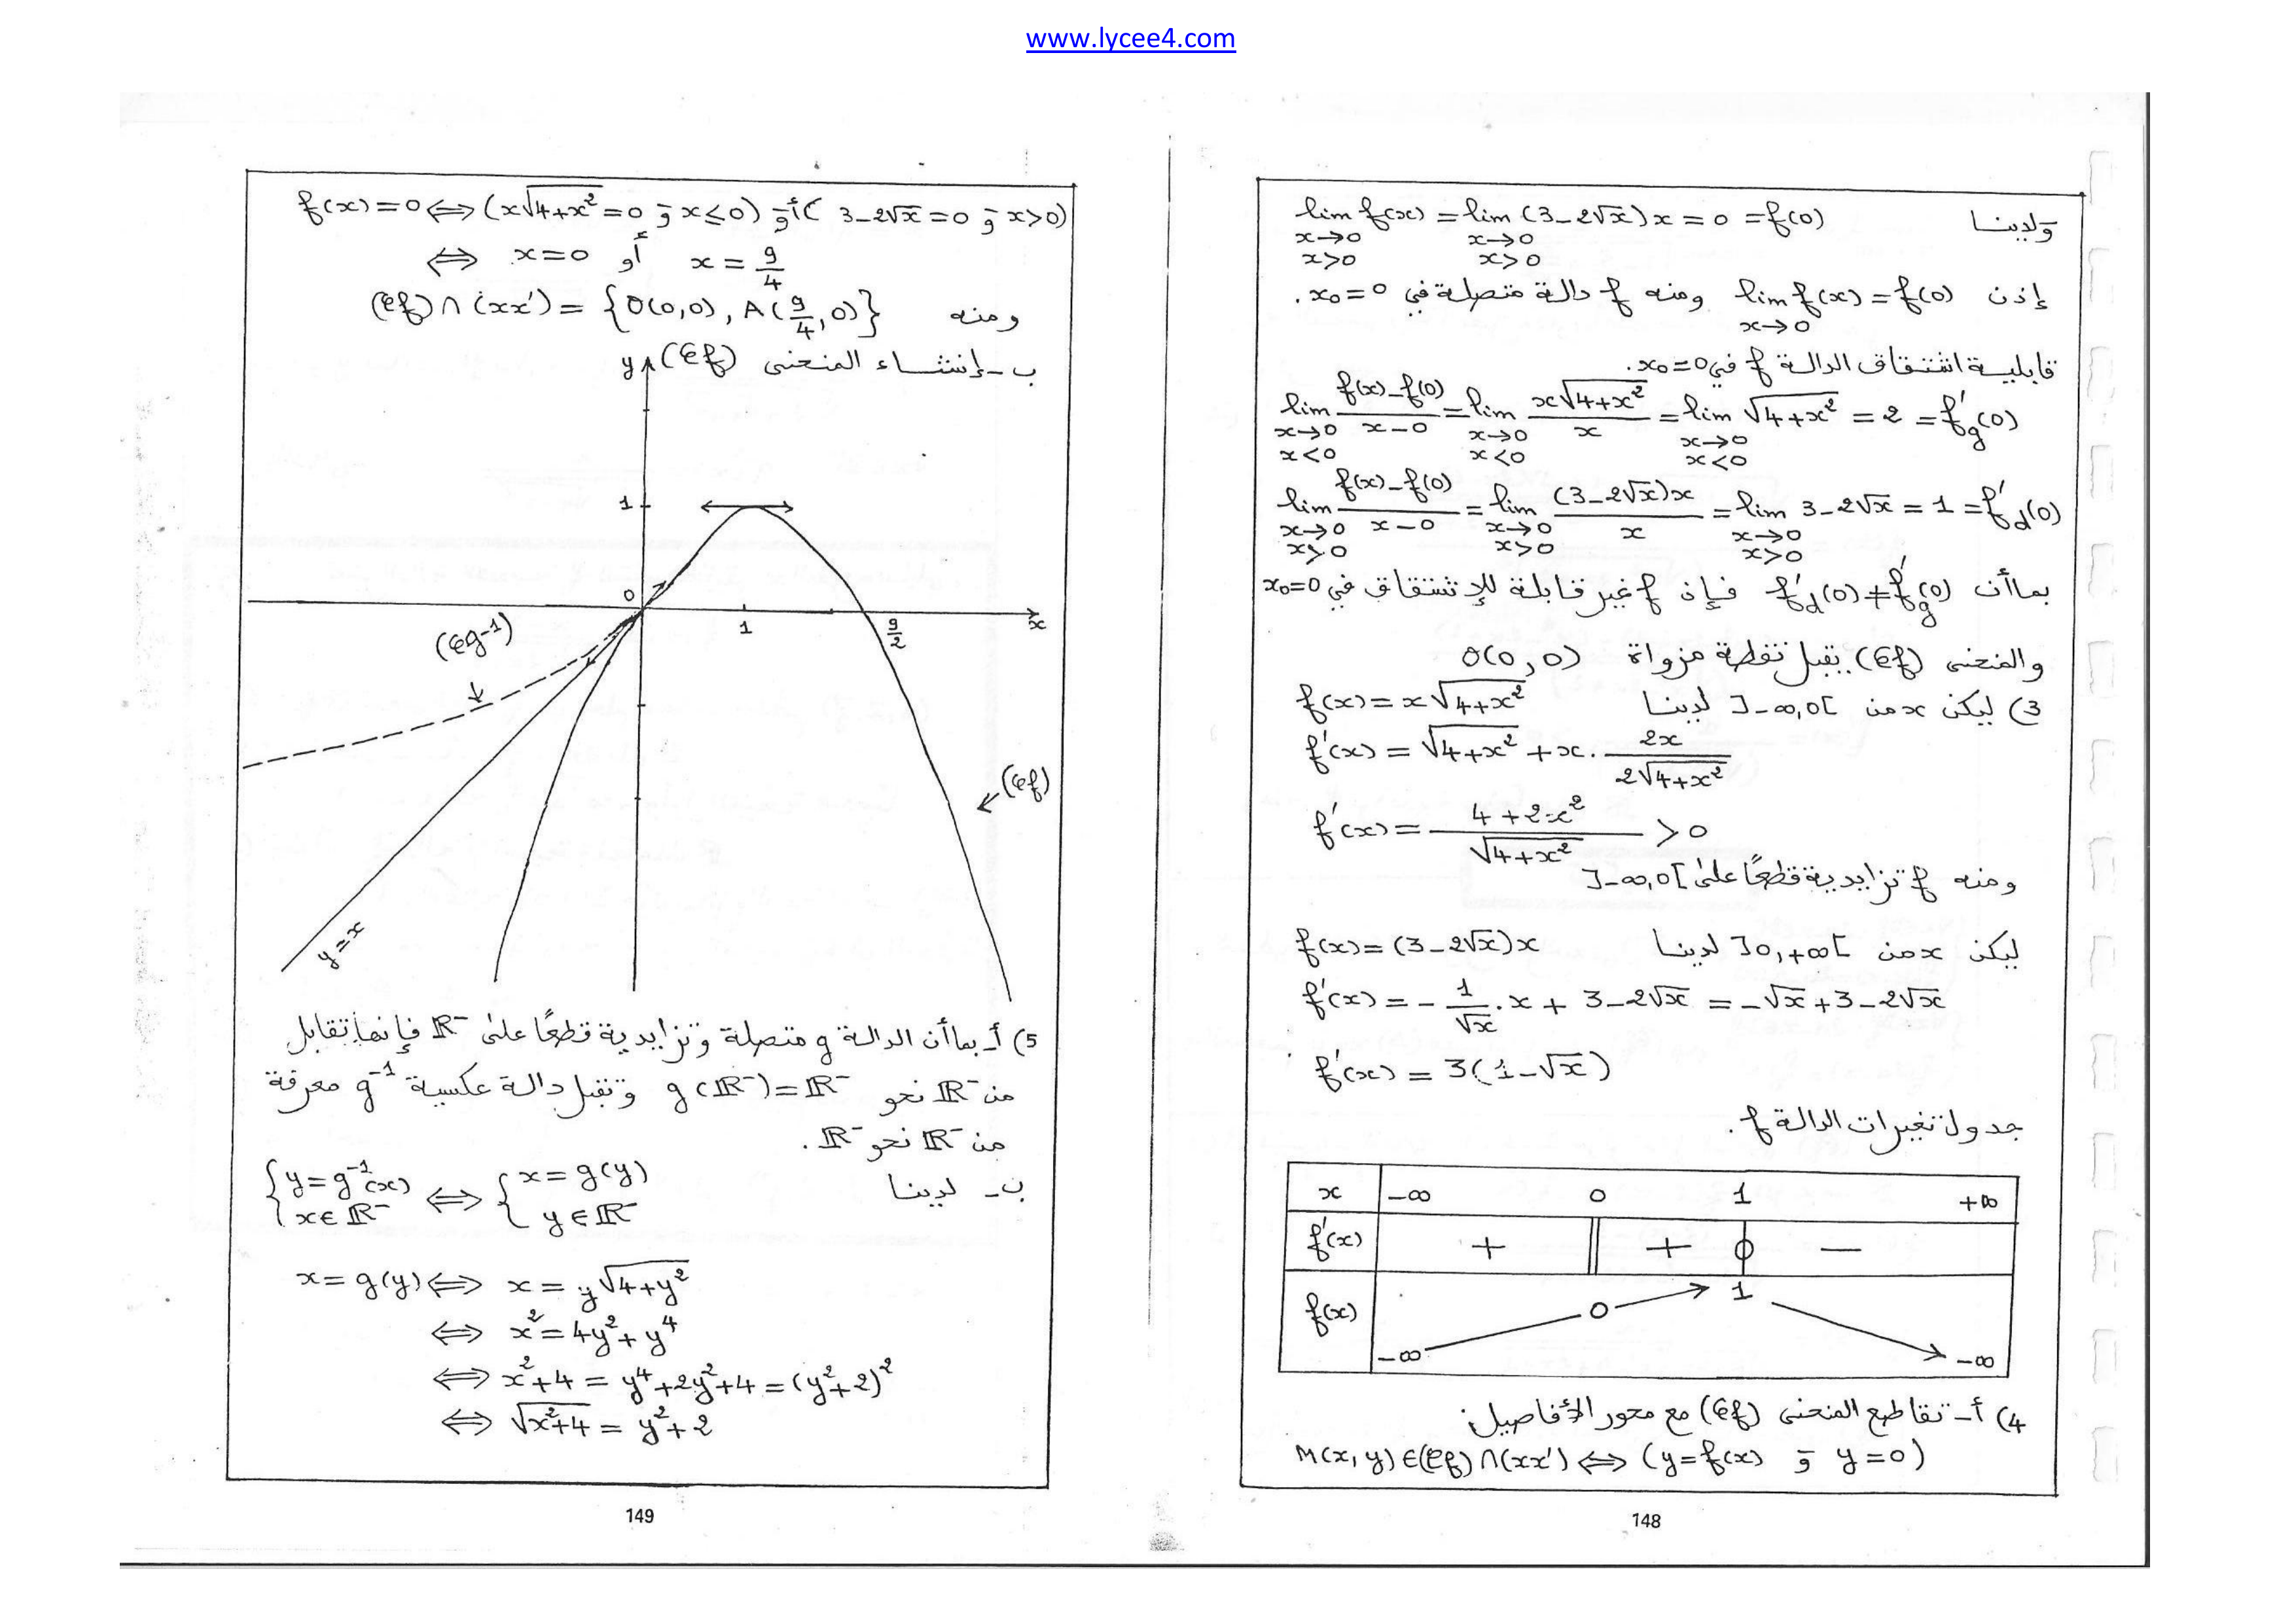 www.lycee4.com
ولدينا lim f(x) = lim (3-2√x)x = 0 = f(0)
x→0 x→0
x>0 x>0
إذن lim f(x) = f(0) ومنه f دالة متصلة في x₀=0.
x→0
قابلية اشتقاق الدالة f في x₀=0.
lim (f(x)-f(0))/(x-0) = lim (x√(4+x²))/x = lim √(4+x²) = 2 = f'g(0)
x→0 x→0 x→0
x<0 x<0 x<0
lim (f(x)-f(0))/(x-0) = lim ((3-2√x)x)/x = lim 3-2√x = 1 = f'd(0)
x→0 x→0 x→0
x>0 x>0 x>0
بما أن f'd(0) ≠ f'g(0) فإن f غير قابلة للإشتقاق في x₀=0
والمنحنى (Cf) يقبل نقطة مزواة O(0,0)
3) ليكن x من ]-∞,0[ لدينا f(x) = x√(4+x²)
f'(x) = √(4+x²) + x. 2x/(2√(4+x²))
f'(x) = (4+2x²)/√(4+x²) > 0
ومنه f تزايدية قطعًا على ]-∞,0[
ليكن x من ]0,+∞[ لدينا f(x) = (3-2√x)x
f'(x) = -1/√x . x + 3-2√x = -√x+3-2√x
f'(x) = 3(1-√x)
جدول تغيرات الدالة f.
x -∞ 0 1 +∞
f'(x) + + 0 -
f(x) -∞ 0 1 -∞
4) أ- تقاطع المنحنى (Cf) مع محور الأفاصيل:
M(x,y)∈(Cf)∩(xx') ⟺ (y=f(x) و y=0)
148
f(x)=0 ⟺ (x√(4+x²)=0 و x≤0) أو (3-2√x=0 و x>0)
⟺ x=0 أو x = 9/4
ومنه (Cf)∩(xx') = {O(0,0), A(9/4,0)}
ب- إنشاء المنحنى (Cf)
y
1
0
1
9/2
x
(Cg-1)
(Cf)
y=x
5) أ- بما أن الدالة g متصلة وتزايدية قطعًا على ℝ⁻ فإنها تقابل
من ℝ⁻ نحو g(ℝ⁻)=ℝ⁻ وتقبل دالة عكسية g⁻¹ معرفة
من ℝ⁻ نحو ℝ⁻.
ب- لدينا {y=g⁻¹(x) ⟺ {x=g(y)
x∈ℝ⁻ y∈ℝ⁻
x=g(y) ⟺ x = y√(4+y²)
⟺ x²=4y²+y⁴
⟺ x²+4 = y⁴+2y²+4 = (y²+2)²
⟺ √(x²+4) = y²+2
149